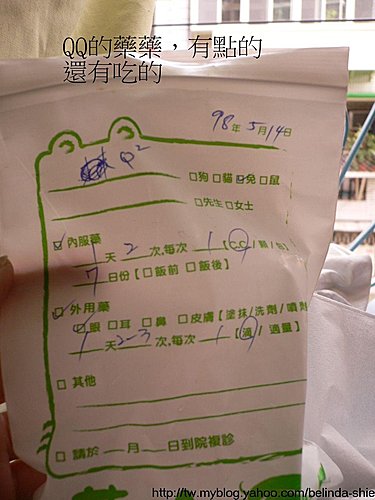 QQ的藥藥，有點的
還有吃的
98年5月14日
Q²
□狗□貓☑兔□鼠
□先生□女士
☑內服藥
1天2次,每次1【CC/顆/包】
7日份【□飯前□飯後】
☑外用藥
☑眼□耳□鼻□皮膚【塗抹/洗劑/噴劑
1天2-3次,每次1【滴/適量】
□其他
□請於__月__日到院複診
http://tw.myblog.yahoo.com/belinda-shie